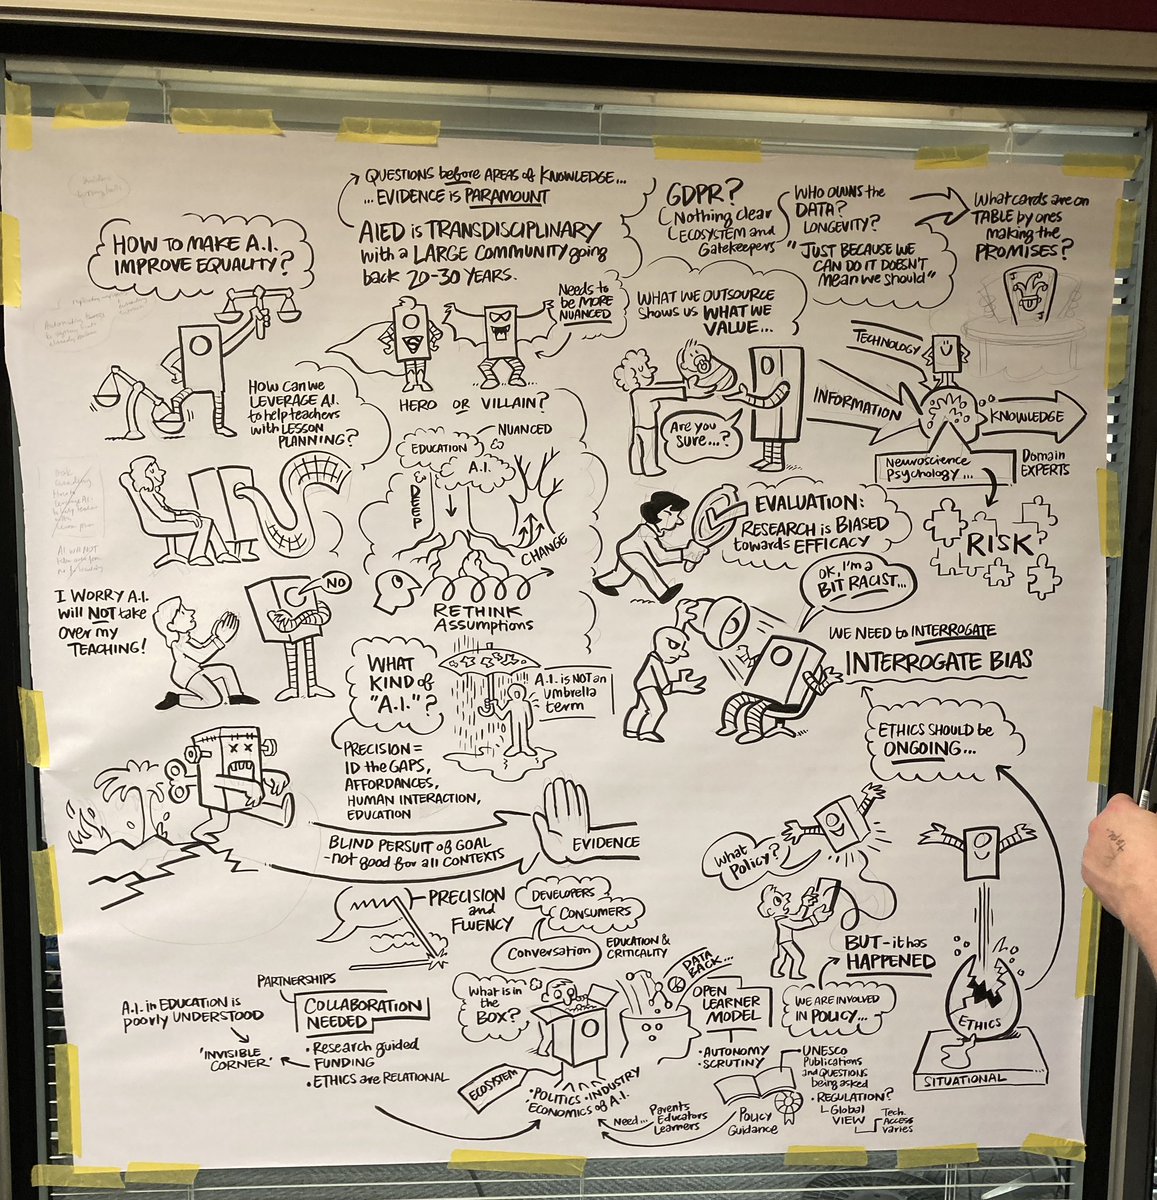 QUESTIONS before AREAS of KNOWLEDGE...
...EVIDENCE is PARAMOUNT
AIED is TRANSDISCIPLINARY
with a LARGE COMMUNITY going
back 20-30 YEARS.
GDPR?
Nothing clear
ECOSYSTEM and
Gatekeepers
WHO OWNS the
DATA?
LONGEVITY?
"JUST BECAUSE WE
CAN DO IT DOESN'T
Mean we SHOULD"
What cards are on
TABLE by ones
making the
PROMISES?
J
HOW TO MAKE A.I.
IMPROVE EQUALITY?
Needs to
be MORE
NUANCED
HERO OR VILLAIN?
S
WHAT WE OUTSOURCE
Shows us WHAT WE
VALUE...
Are you
SURE...?
TECHNOLOGY
INFORMATION
KNOWLEDGE
Neuroscience
Psychology...
Domain
EXPERTS
RISK?
HOW CAN WE
LEVERAGE A.I.
to help teachers
with LESSON
PLANNING?
NUANCED
EDUCATION
A.I.
DEEP
CHANGE
RETHINK
Assumptions
EVALUATION:
RESEARCH is BIASED
towards EFFICACY
OK, I'M A
BIT RACIST...
WE NEED to INTERROGATE
INTERROGATE BIAS
I WORRY A.I.
will NOT take
over my
TEACHING!
NO
WHAT
KIND of
"A.I."?
A.I. is NOT an
umbrella
term
PRECISION =
ID the GAPS,
AFFORDANCES,
HUMAN INTERACTION,
EDUCATION
ETHICS SHOULD be
ONGOING...
BLIND PERSUIT of GOAL
-not good for all CONTEXTS
EVIDENCE
What
POLICY?
BUT-it has
HAPPENED
WE ARE INVOLVED
IN POLICY...
ETHICS
SITUATIONAL
PRECISION
and
FLUENCY
DEVELOPERS
CONSUMERS
Conversation
EDUCATION &
CRITICALITY
DATA
BACK...
PARTNERSHIPS
A.I. in EDUCATION is
poorly UNDERSTOOD
'INVISIBLE
CORNER'
COLLABORATION
NEEDED
• Research guided
FUNDING
• ETHICS are RELATIONAL
What is in
the
BOX?
ECOSYSTEM
• POLITICS • INDUSTRY
• ECONOMICS of A.I.
OPEN
LEARNER
MODEL
• AUTONOMY
• SCRUTINY
Need...
Parents
Educators
Learners
Policy
Guidance
UNESCO
Publications
and QUESTIONS
being asked
• REGULATION?
Global
VIEW
Tech.
ACCESS
Varies